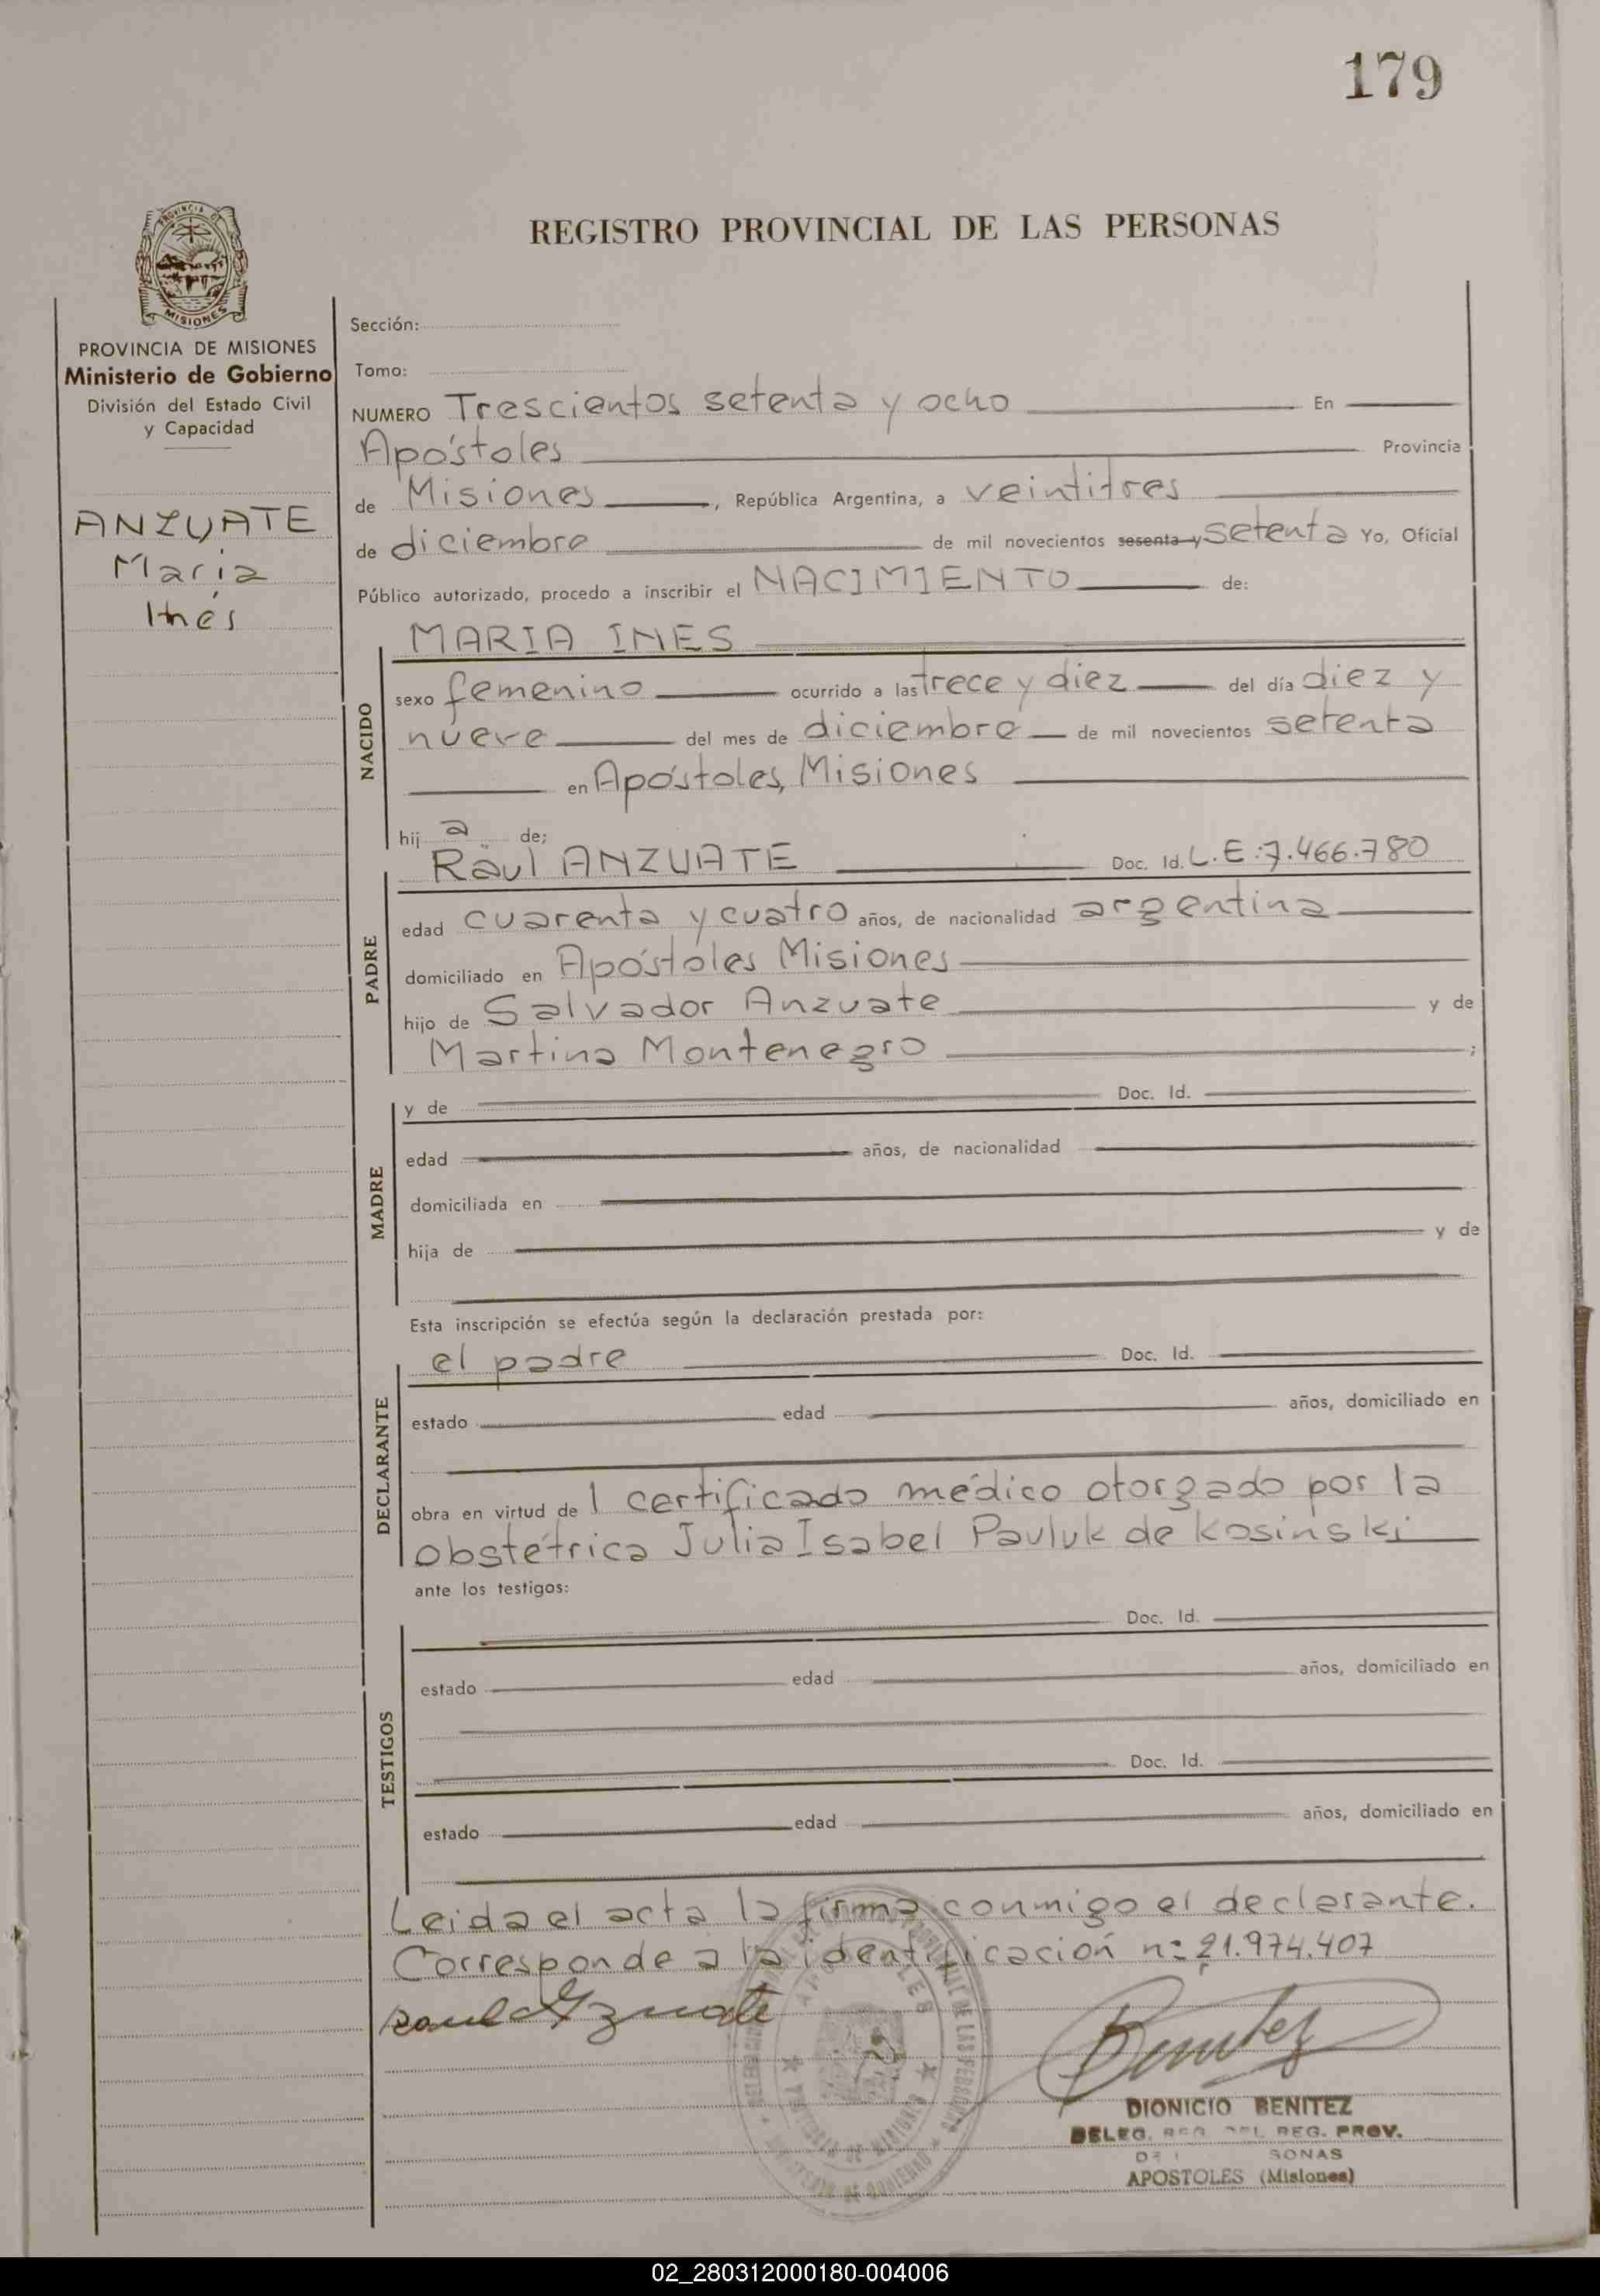 179
PROVINCIA DE
MISIONES
REGISTRO PROVINCIAL DE LAS PERSONAS
PROVINCIA DE MISIONES
Ministerio de Gobierno
División del Estado Civil
y Capacidad
ANZUATE
Maria
Inés
Sección:
Tomo:
NUMERO Trescientos setenta y ocho En
Apóstoles Provincia
de Misiones, República Argentina, a veintitres
de diciembre de mil novecientos sesenta y setenta Yo, Oficial
Público autorizado, procedo a inscribir el NACIMIENTO de:
MARIA INES
NACIDO
sexo femenino ocurrido a las trece y diez del día diez y
nueve del mes de diciembre de mil novecientos setenta
en Apóstoles, Misiones
hij a de;
PADRE
Raúl ANZUATE Doc. Id. L.E:7.466.780
edad cuarenta y cuatro años, de nacionalidad argentina
domiciliado en Apóstoles Misiones
hijo de Salvador Anzuate y de
Martina Montenegro ;
MADRE
y de Doc. Id.
edad años, de nacionalidad
domiciliada en
hija de y de
Esta inscripción se efectúa según la declaración prestada por:
DECLARANTE
el padre Doc. Id.
estado edad años, domiciliado en
obra en virtud de l certificado médico otorgado por la
obstétrica Julia Isabel Pauluk de Kosinski
ante los testigos:
TESTIGOS
Doc. Id.
estado edad años, domiciliado en
Doc. Id.
estado edad años, domiciliado en
Leida el acta la firma conmigo el declarante.
Corresponde a la identificación nº 21.974.407
Raul Anzuate
Benitez
DIONICIO BENITEZ
DELEG. REG. DEL REG. PROV.
SONAS
APOSTOLES (Misiones)
02_280312000180-004006